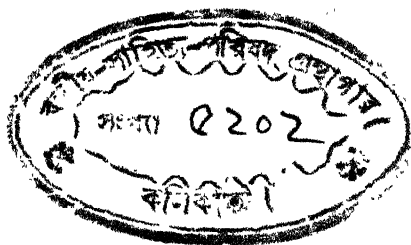 বঙ্গীয়-সাহিত্য-পরিষদ্ গ্রন্থাগার
সংখ্যা ৫২০২
কলিকাতা